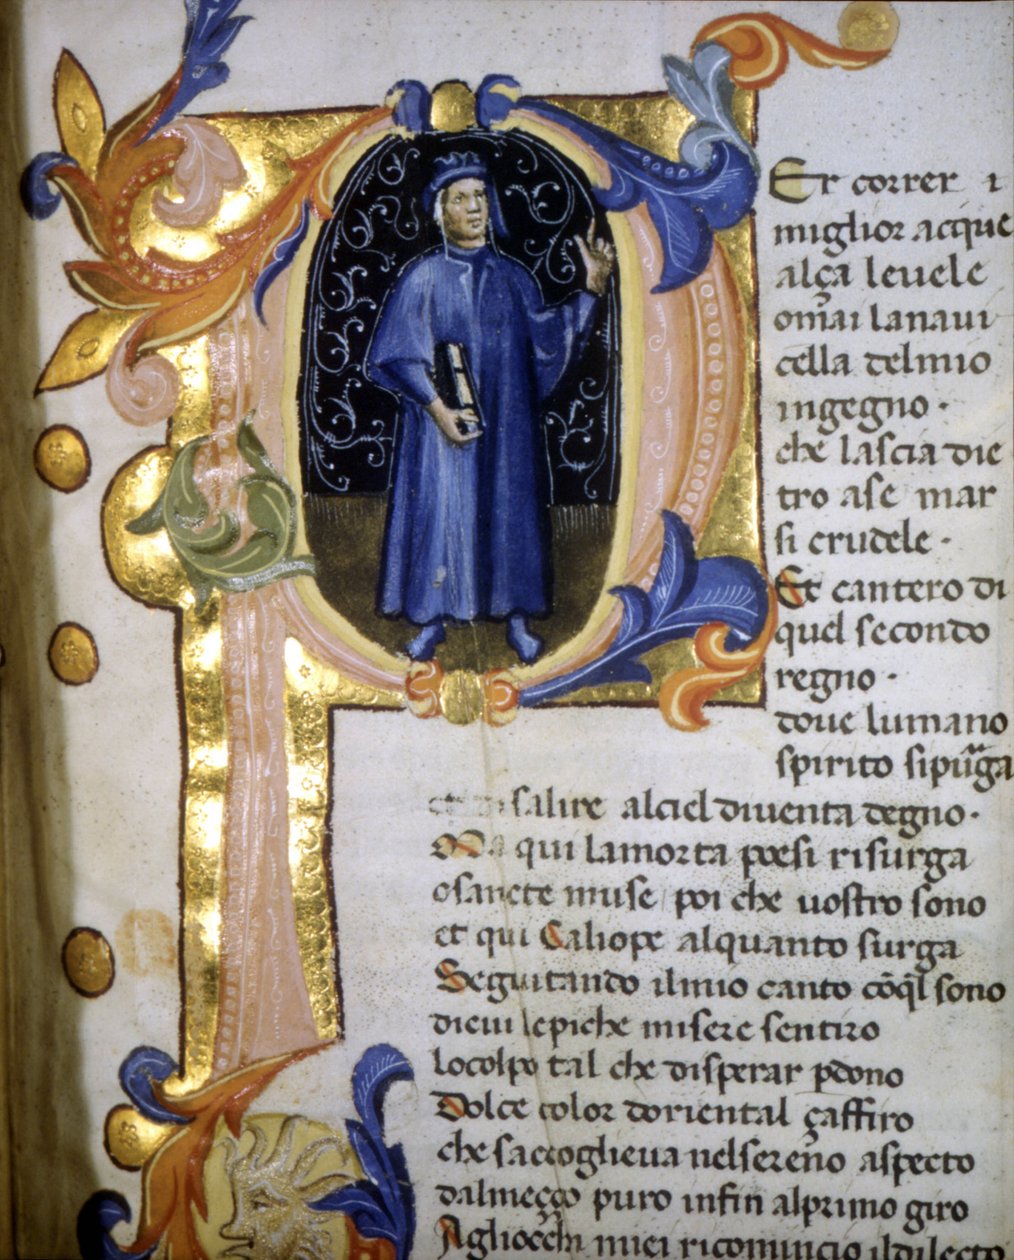 P
Er correr i
miglior acque
alça leuele
omai lanaui
cella del mio
ingegno ·
che lascia die
tro ase mar
si crudele ·
Et cantero di
quel secondo
regno ·
doue lumano
spirito si purga
salire al ciel diuenta degno ·
Ma qui lamorta poesi risurga
o sancte muse poi che uostro sono
et qui Caliope alquanto surga
Seguitando il mio canto cõ q̃l sono
di cui le piche misere sentiro
locolpo tal che disperar pdono
Dolce color doriental çaffiro
che saccoglieua nel sereno aspecto
dal meçço puro infin al primo giro
Agliocchi miei ricomincio